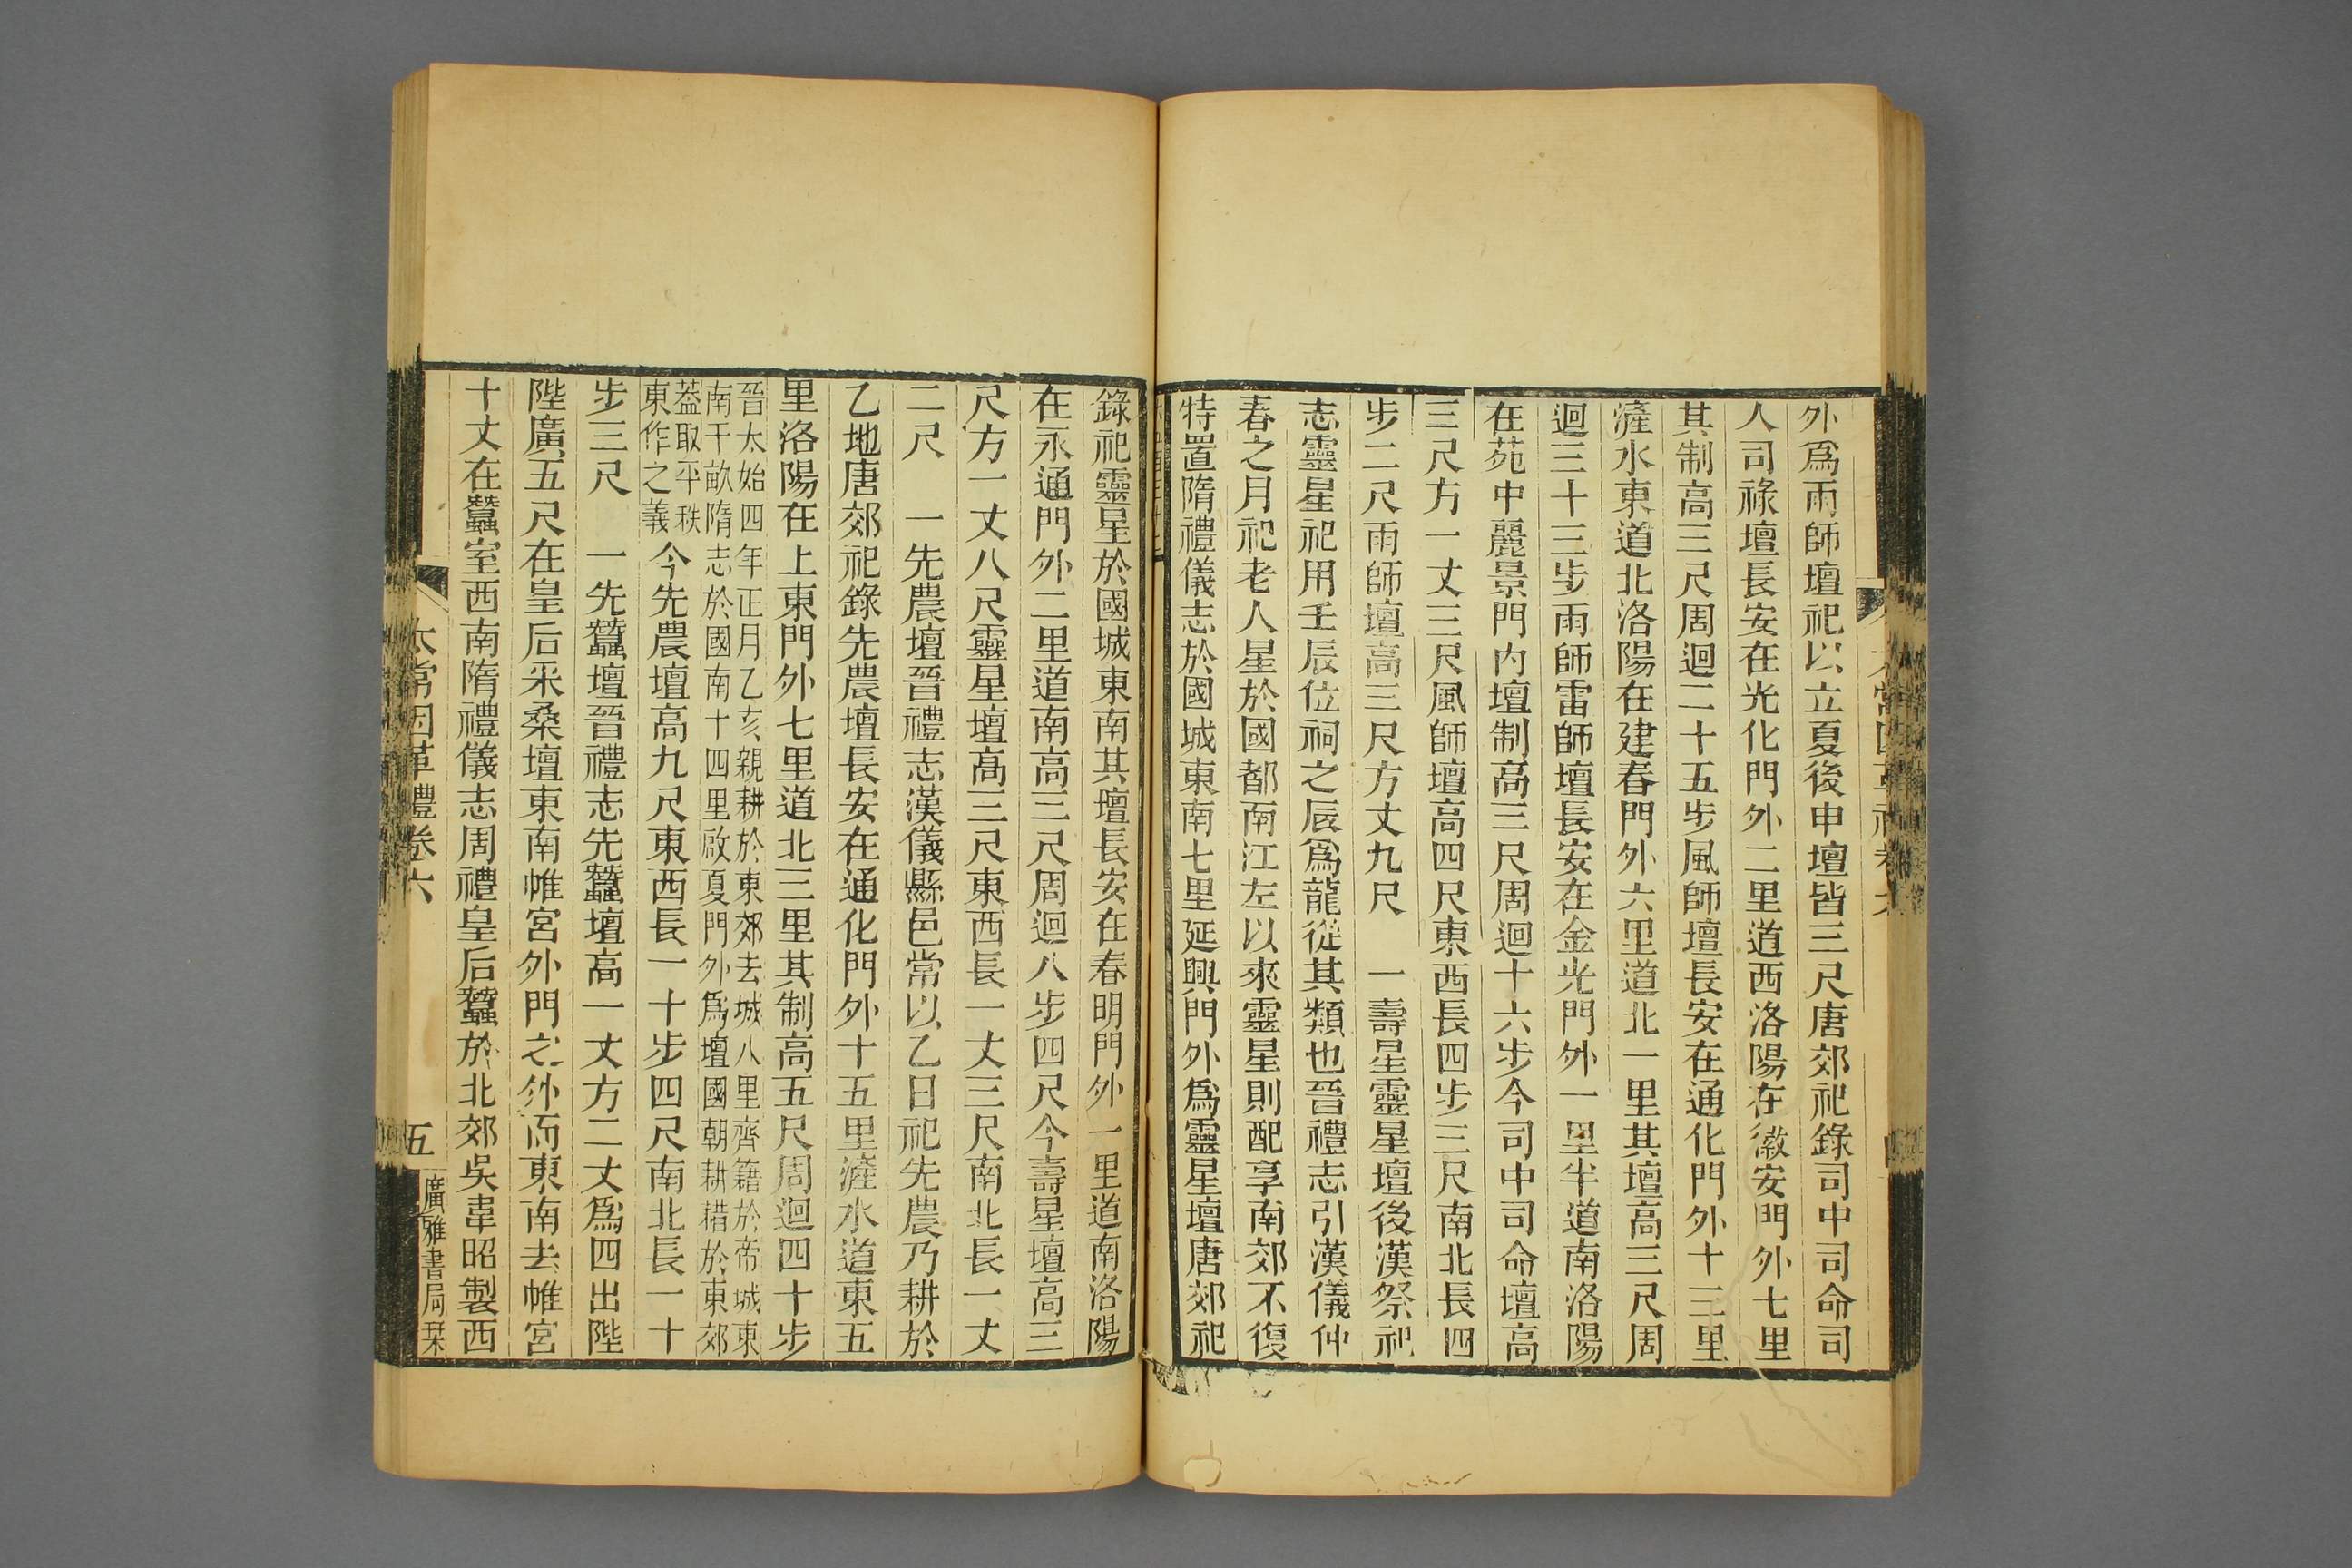 外爲雨師壇祀以立夏後申壇皆三尺唐郊祀錄司中司命司
人司祿壇長安在光化門外二里道西洛陽在徽安門外七里
其制高三尺周迴二十五步風師壇長安在通化門外十三里
滻水東道北洛陽在建春門外六里道北一里其壇高三尺周
迴三十三步雨師雷師壇長安在金光門外一里半道南洛陽
在苑中麗景門内壇制高三尺周迴十六步今司中司命壇高
三尺方一丈三尺風師壇高四尺東西長四步三尺南北長四
步二尺雨師壇高三尺方丈九尺　一壽星靈星壇後漢祭祀
志靈星祀用壬辰位祠之辰爲龍從其類也晉禮志引漢儀仲
春之月祀老人星於國都南江左以來靈星則配享南郊不復
特置隋禮儀志於國城東南七里延興門外爲靈星壇唐郊祀
錄祀靈星於國城東南其壇長安在春明門外一里道南洛陽
在永通門外二里道南高三尺周迴八步四尺今壽星壇高三
尺方一丈八尺靈星壇高三尺東西長一丈三尺南北長一丈
二尺　一先農壇晉禮志漢儀縣邑常以乙日祀先農乃耕於
乙地唐郊祀錄先農壇長安在通化門外十五里滻水道東五
里洛陽在上東門外七里道北三里其制高五尺周迴四十步
晉太始四年正月乙亥親耕於東郊去城八里齊籍於帝城東
南千畝隋志於國南十四里啟夏門外爲壇國朝耕耤於東郊
蓋取平秩
東作之義
今先農壇高九尺東西長一十步四尺南北長一十
步三尺　一先蠶壇晉禮志先蠶壇高一丈方二丈爲四出陛
陛廣五尺在皇后采桑壇東南帷宮外門之外而東南去帷宮
十丈在蠶室西南隋禮儀志周禮皇后蠶於北郊吳韋昭製西
太常因革禮卷六
五
廣雅書局栞